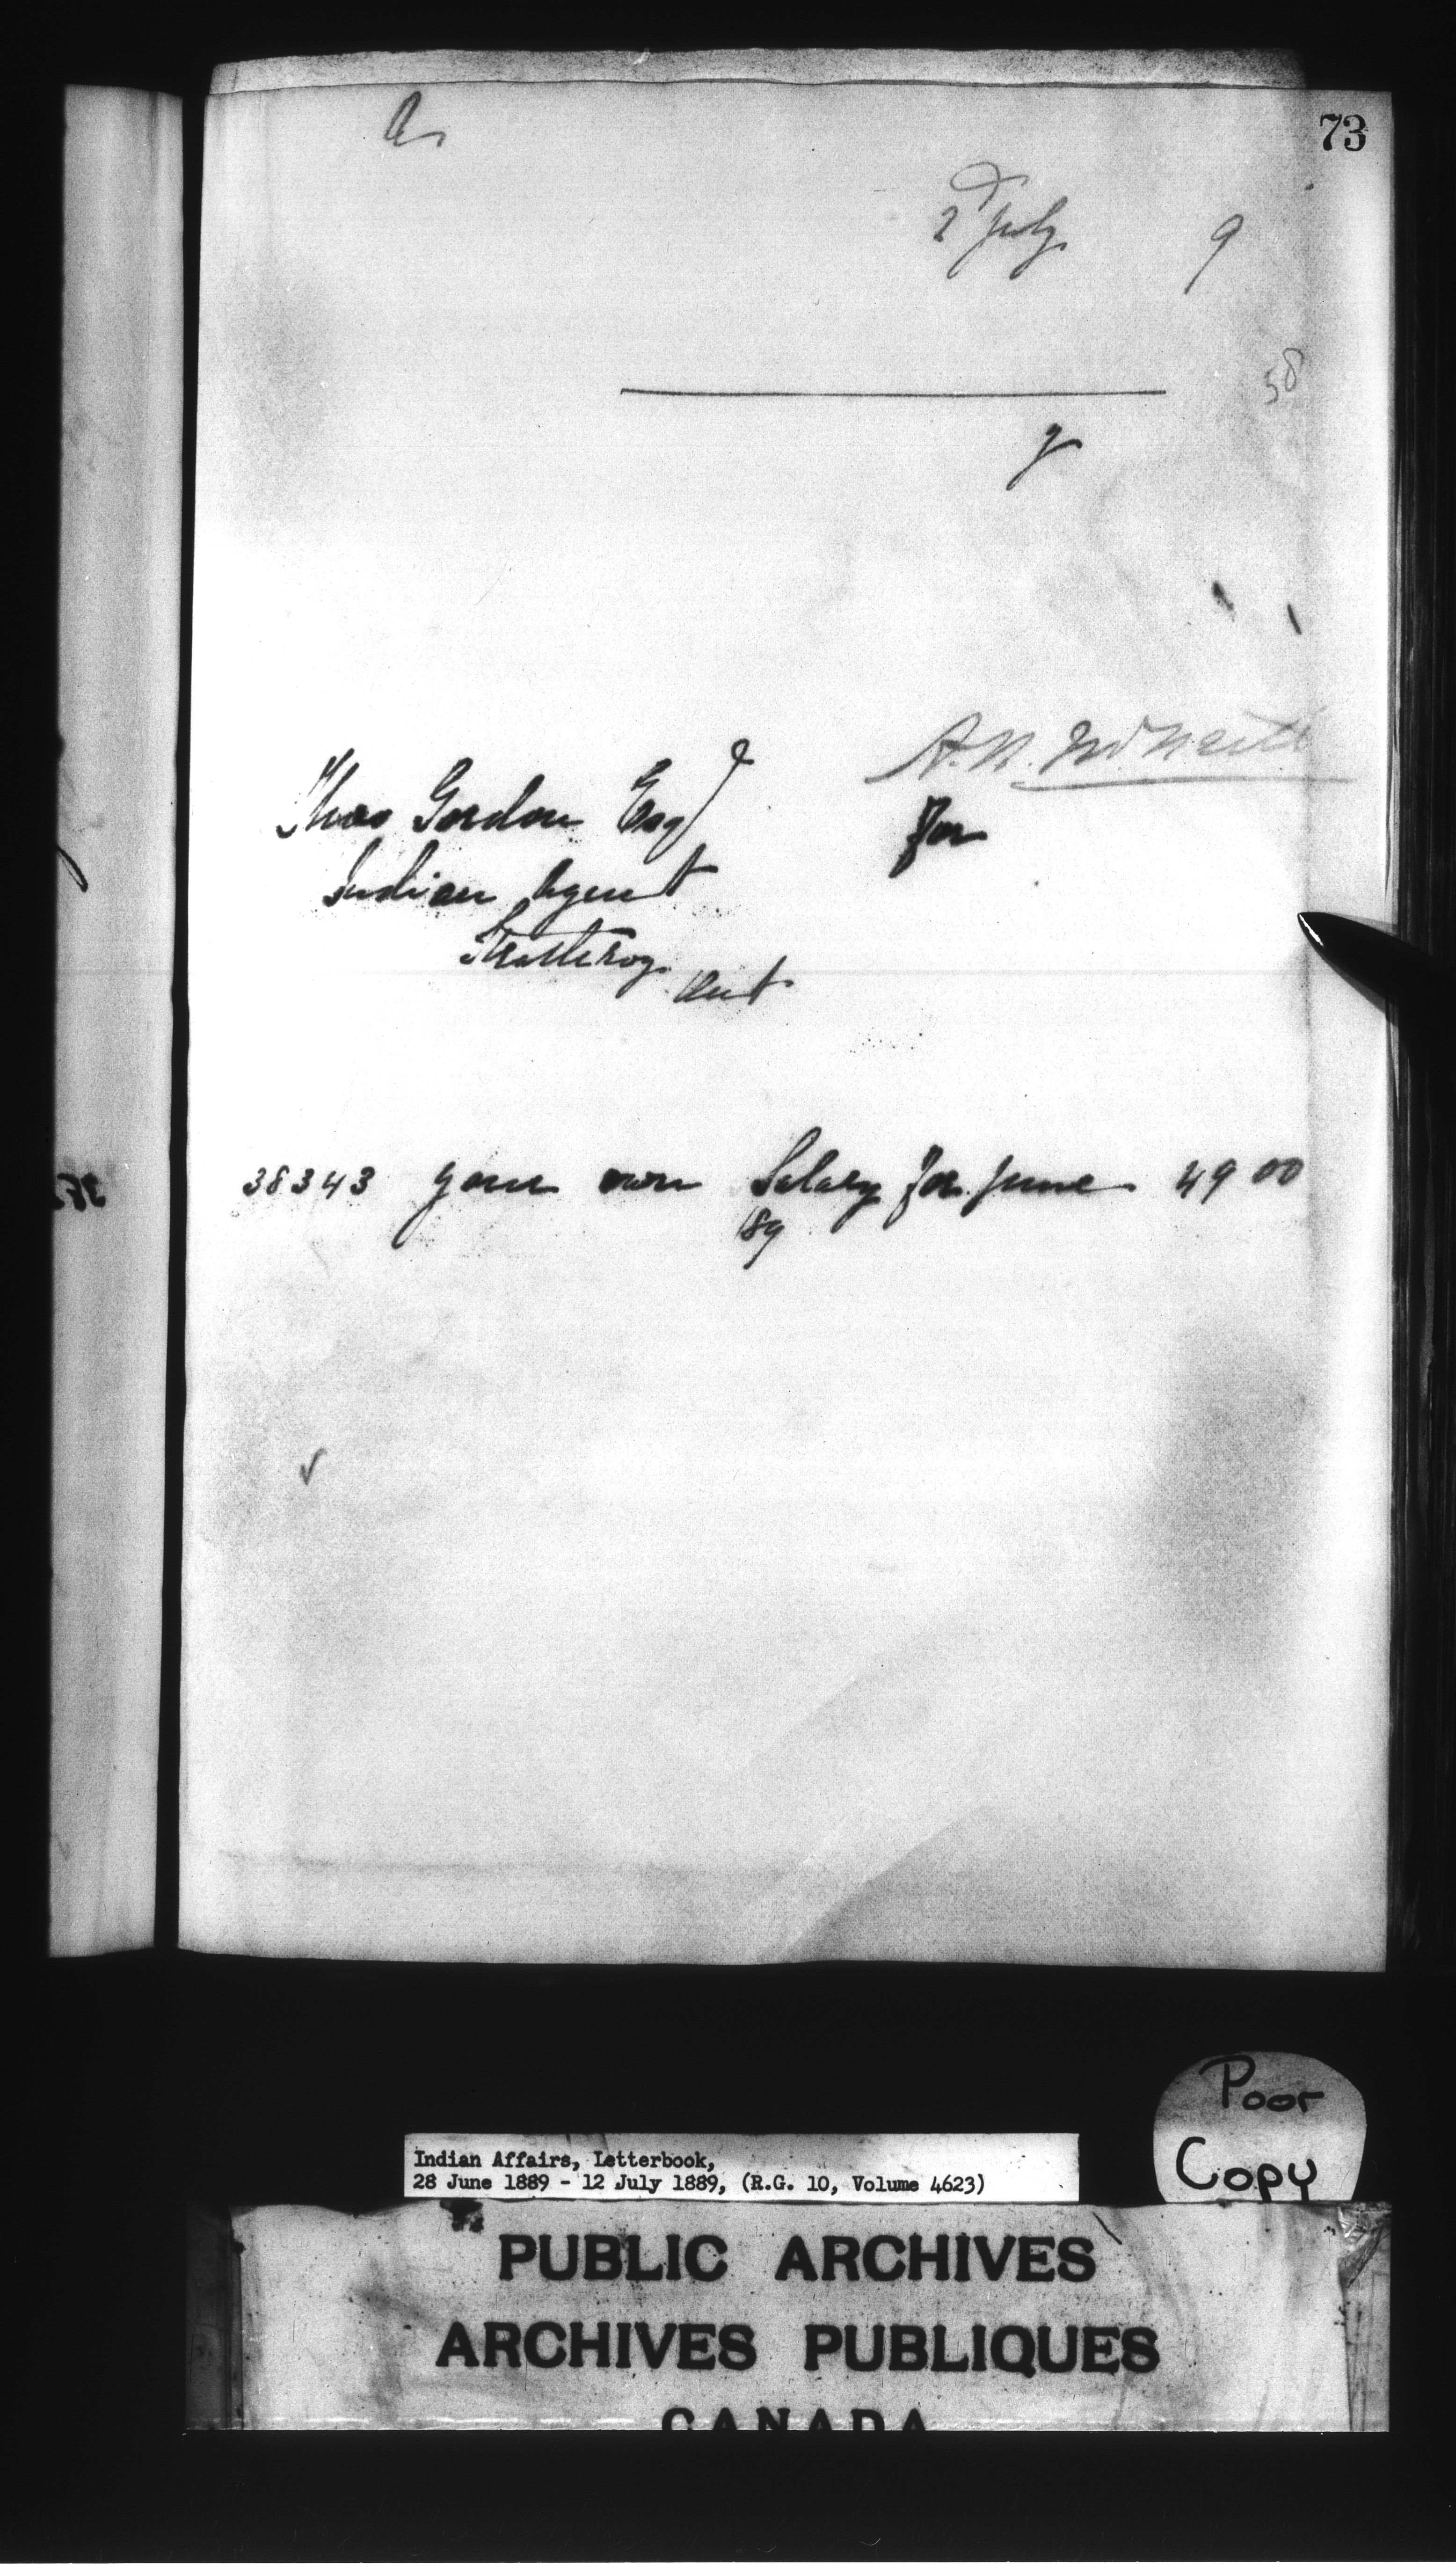 73
2d July 9
58
A. N. McNeill
Thos Gordon Esqr
for
Indian Agent
Strathroy
Ont
38343 your own Salary for June 49 00
/89
Poor
Copy
Indian Affairs, Letterbook,
28 June 1889 - 12 July 1889, (R.G. 10, Volume 4623)
PUBLIC ARCHIVES
ARCHIVES PUBLIQUES
CANADA